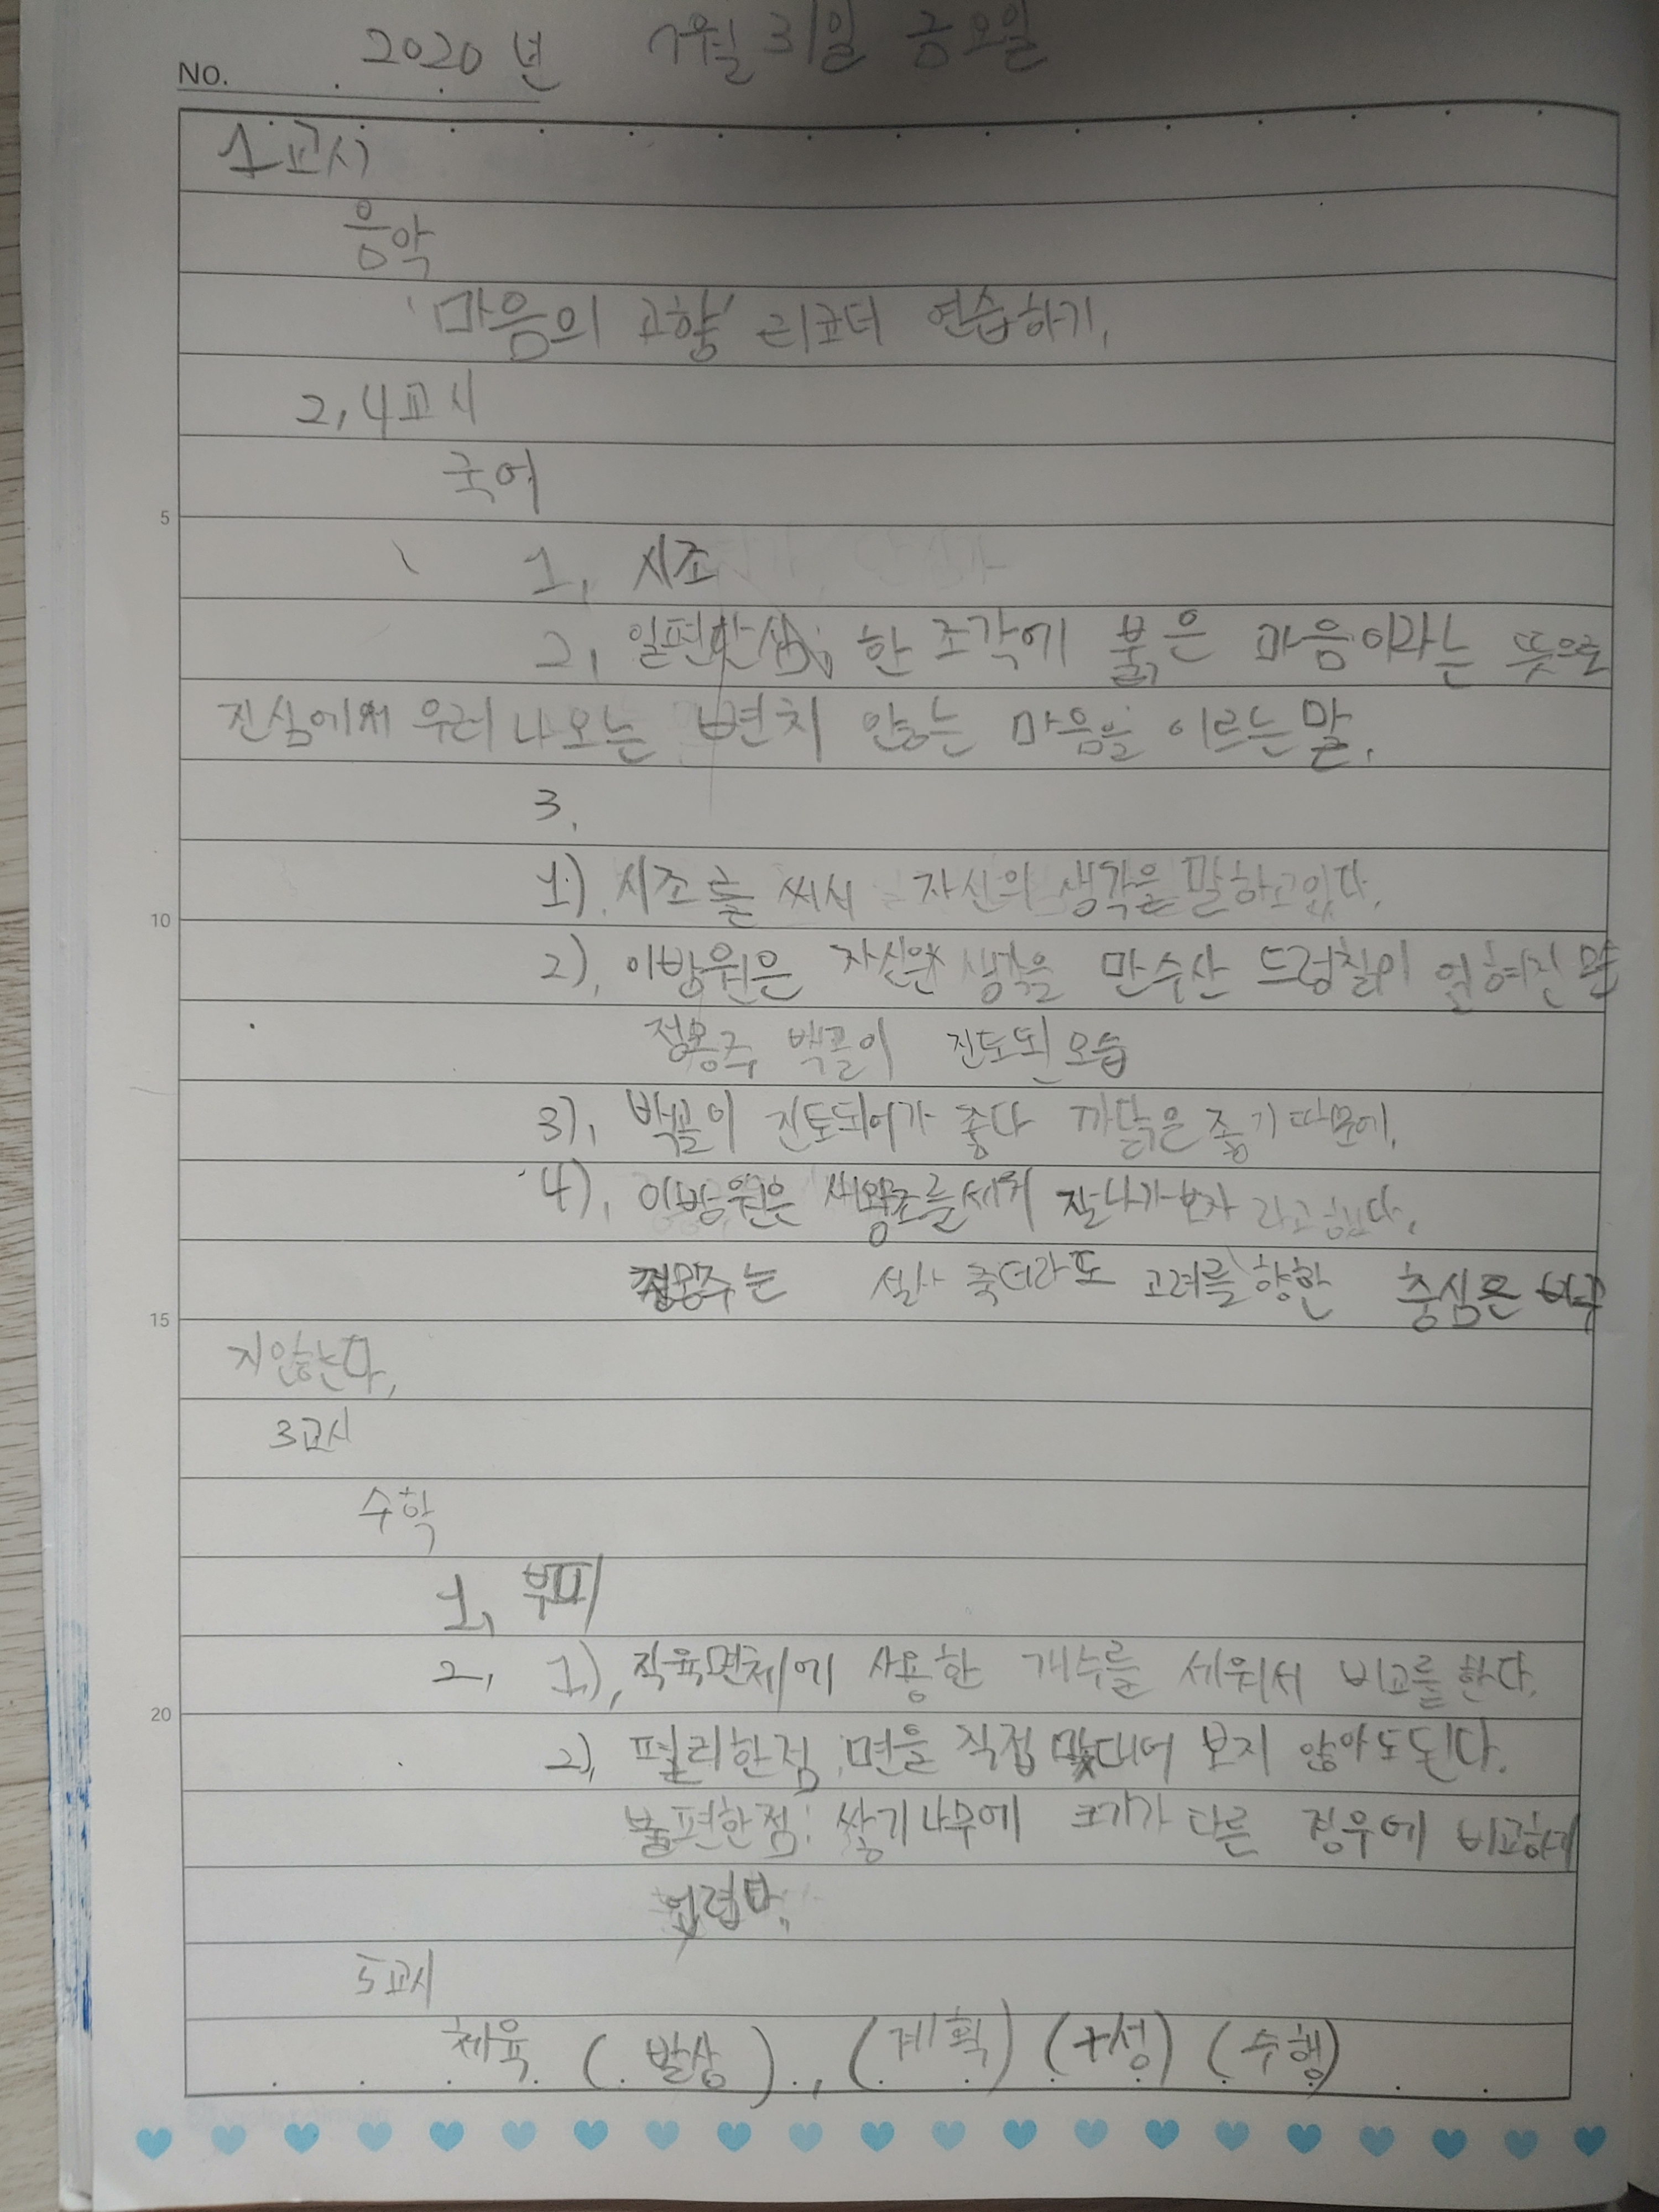 NO. 2020년 7월 31일 금요일
1교시
음악
'마음의 고향' 리코더 연습하기.
2, 4교시
국어
5
1, 시조
2, 일편단심; 한 조각에 붉은 마음이라는 뜻으로
진심에서 우러나오는 변치 않는 마음을 이르는 말.
3.
1). 시조를 써서 자신의 생각을 말하고있다.
10
2), 이방원은 자신의 생각을 만수산 드렁칡이 얽혀진
정몽주 백골이 진토된 모습
3), 백골이 진토되어가 좋다 까닭은 좋기때문에.
4), 이방원은 새왕조를세워 잘나가보자 라고했다.
정몽주는 설사 죽더라도 고려를향한 충심은
15
지않한다,
3교시
수학
1, 부피
2, 1), 직육면체에 사용한 개수를 세워서 비교를 한다.
20
2), 편리한점: 면을 직접 맞대어 보지 않아도된다.
불편한점: 쌓기나무에 크기가 다른 경우에 비교하기
어렵다.
5교시
체육 (발상), (계획) (구성) (수행)